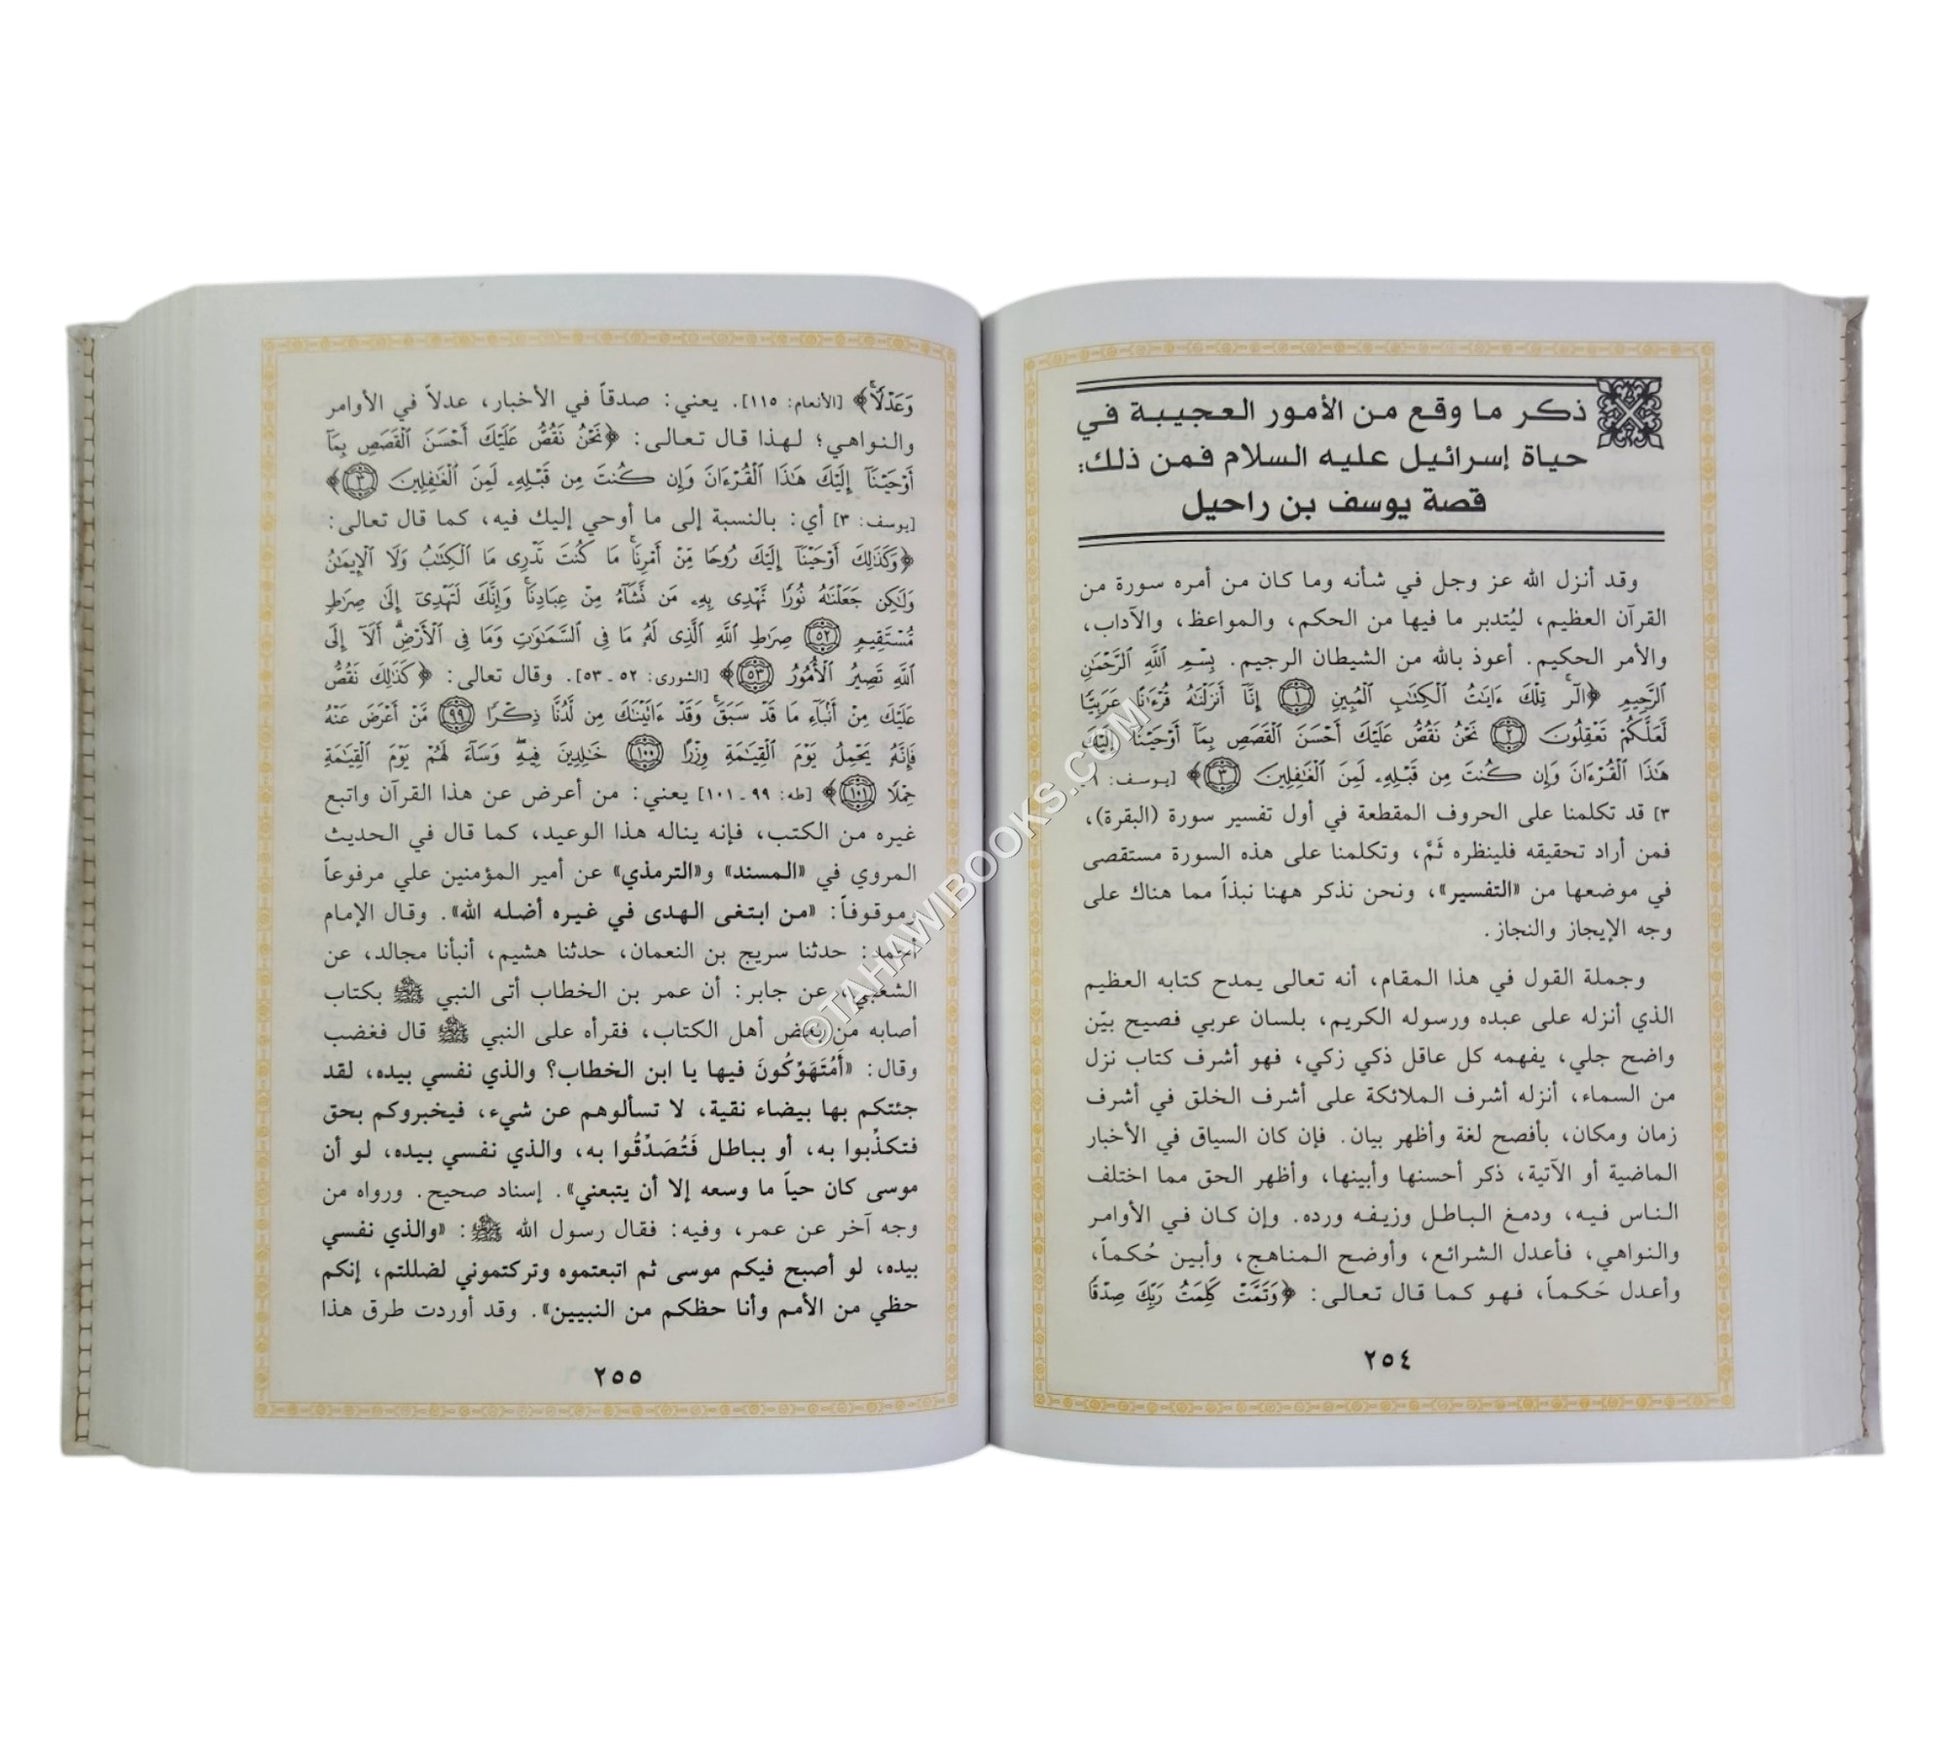 ذكر ما وقع من الأمور العجيبة في
حياة إسرائيل عليه السلام فمن ذلك:
قصة يوسف بن راحيل
وقد أنزل الله عز وجل في شأنه وما كان من أمره سورة من
القرآن العظيم، ليُتدبر ما فيها من الحكم، والمواعظ، والآداب،
والأمر الحكيم. أعوذ بالله من الشيطان الرجيم. بِسْمِ اللَّهِ الرَّحْمَٰنِ
الرَّحِيمِ ﴿الٓرۚ تِلْكَ ءَايَٰتُ ٱلْكِتَٰبِ ٱلْمُبِينِ ١ إِنَّآ أَنزَلْنَٰهُ قُرْءَٰنًا عَرَبِيًّا
لَّعَلَّكُمْ تَعْقِلُونَ ٢ نَحْنُ نَقُصُّ عَلَيْكَ أَحْسَنَ ٱلْقَصَصِ بِمَآ أَوْحَيْنَآ إِلَيْكَ
هَٰذَا ٱلْقُرْءَانَ وَإِن كُنتَ مِن قَبْلِهِۦ لَمِنَ ٱلْغَٰفِلِينَ ٣﴾ [يوسف: ١ـ
٣] قد تكلمنا على الحروف المقطعة في أول تفسير سورة (البقرة)،
فمن أراد تحقيقه فلينظره ثَمَّ، وتكلمنا على هذه السورة مستقصى
في موضعها من «التفسير»، ونحن نذكر ههنا نبذاً مما هناك على
وجه الإيجاز والنجاز.
وجملة القول في هذا المقام، أنه تعالى يمدح كتابه العظيم
الذي أنزله على عبده ورسوله الكريم، بلسان عربي فصيح بيّن
واضح جلي، يفهمه كل عاقل ذكي زكي، فهو أشرف كتاب نزل
من السماء، أنزله أشرف الملائكة على أشرف الخلق في أشرف
زمان ومكان، بأفصح لغة وأظهر بيان. فإن كان السياق في الأخبار
الماضية أو الآتية، ذكر أحسنها وأبينها، وأظهر الحق مما اختلف
الناس فيه، ودمغ الباطل وزيفه ورده. وإن كان في الأوامر
والنواهي، فأعدل الشرائع، وأوضح المناهج، وأبين حُكماً،
وأعدل حَكماً، فهو كما قال تعالى: ﴿وَتَمَّتْ كَلِمَتُ رَبِّكَ صِدْقًا
٢٥٤
وَعَدْلًا﴾ [الأنعام: ١١٥]. يعني: صدقاً في الأخبار، عدلاً في الأوامر
والنواهي؛ لهذا قال تعالى: ﴿نَحْنُ نَقُصُّ عَلَيْكَ أَحْسَنَ ٱلْقَصَصِ بِمَآ
أَوْحَيْنَآ إِلَيْكَ هَٰذَا ٱلْقُرْءَانَ وَإِن كُنتَ مِن قَبْلِهِۦ لَمِنَ ٱلْغَٰفِلِينَ ٣﴾
[يوسف: ٣] أي: بالنسبة إلى ما أوحي إليك فيه، كما قال تعالى:
﴿وَكَذَٰلِكَ أَوْحَيْنَآ إِلَيْكَ رُوحًا مِّنْ أَمْرِنَاۚ مَا كُنتَ تَدْرِى مَا ٱلْكِتَٰبُ وَلَا ٱلْإِيمَٰنُ
وَلَٰكِن جَعَلْنَٰهُ نُورًا نَّهْدِى بِهِۦ مَن نَّشَآءُ مِنْ عِبَادِنَاۚ وَإِنَّكَ لَتَهْدِىٓ إِلَىٰ صِرَٰطٍ
مُّسْتَقِيمٍ ٥٢ صِرَٰطِ ٱللَّهِ ٱلَّذِى لَهُۥ مَا فِى ٱلسَّمَٰوَٰتِ وَمَا فِى ٱلْأَرْضِۗ أَلَآ إِلَى
ٱللَّهِ تَصِيرُ ٱلْأُمُورُ ٥٣﴾ [الشورى: ٥٢ ـ ٥٣]. وقال تعالى: ﴿كَذَٰلِكَ نَقُصُّ
عَلَيْكَ مِنْ أَنۢبَآءِ مَا قَدْ سَبَقَۚ وَقَدْ ءَاتَيْنَٰكَ مِن لَّدُنَّا ذِكْرًا ٩٩ مَّنْ أَعْرَضَ عَنْهُ
فَإِنَّهُۥ يَحْمِلُ يَوْمَ ٱلْقِيَٰمَةِ وِزْرًا ١٠٠ خَٰلِدِينَ فِيهِۖ وَسَآءَ لَهُمْ يَوْمَ ٱلْقِيَٰمَةِ
حِمْلًا ١٠١﴾ [طه: ٩٩ ـ ١٠١] يعني: من أعرض عن هذا القرآن واتبع
غيره من الكتب، فإنه يناله هذا الوعيد، كما قال في الحديث
المروي في «المسند» و«الترمذي» عن أمير المؤمنين علي مرفوعاً
وموقوفاً: «من ابتغى الهدى في غيره أضله الله». وقال الإمام
أحمد: حدثنا سريج بن النعمان، حدثنا هشيم، أنبأنا مجالد، عن
الشعبي، عن جابر: أن عمر بن الخطاب أتى النبي ﷺ بكتاب
أصابه من بعض أهل الكتاب، فقرأه على النبي ﷺ قال فغضب
وقال: «أَمُتَهَوِّكُونَ فيها يا ابن الخطاب؟ والذي نفسي بيده، لقد
جئتكم بها بيضاء نقية، لا تسألوهم عن شيء، فيخبروكم بحق
فتكذِّبوا به، أو بباطل فَتُصَدِّقُوا به، والذي نفسي بيده، لو أن
موسى كان حياً ما وسعه إلا أن يتبعني». إسناد صحيح. ورواه من
وجه آخر عن عمر، وفيه: فقال رسول الله ﷺ: «والذي نفسي
بيده، لو أصبح فيكم موسى ثم اتبعتموه وتركتموني لضللتم، إنكم
حظي من الأمم وأنا حظكم من النبيين». وقد أوردت طرق هذا
٢٥٥
©TAHAWIBOOKS.COM